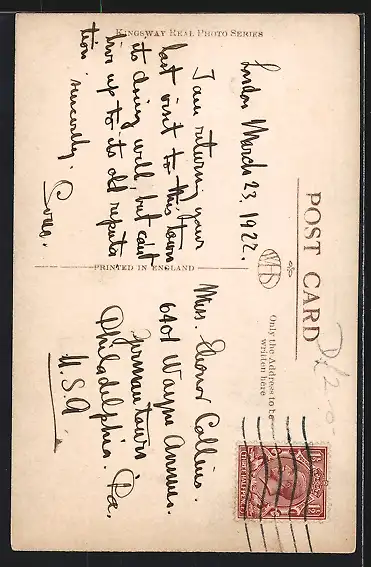 POST CARD
KINGSWAY REAL PHOTO SERIES
PRINTED IN ENGLAND
Only the Address to be
written here
London March 23, 1922.
I am returning your
last visit to this town
its doing well, but cant
live up to its old reputa
tion sincerely.
Miss. Eleonor Collins.
6401 Wayne Avenue.
Germantown
Philadelphia. Pa,
U.S.A
1½
THREE HALFPENCE